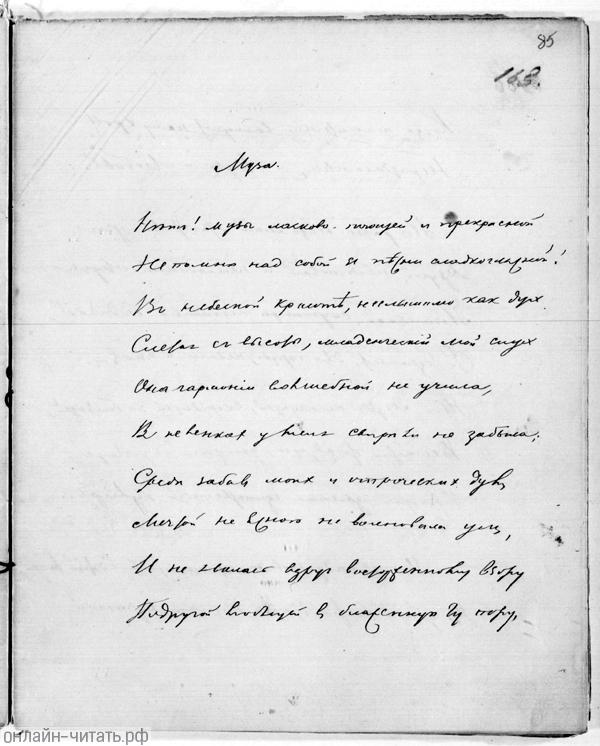 85
168.
Муза.
Нѣтъ! музы ласково-поющей и прекрасной
Не помню над собой я пѣсни сладкогласной!
Въ небесной красотѣ, неслышимо как дух
Слетая съ высоты, младенческій мой слух
Она гармоніи волшебной не учила,
В пеленках у меня свирѣли не забыла;
Среди забав моих и отроческих дум,
Мечтой неясною не волновала ум,
И не явилась вдруг восторженному взору
Подругой любящей в блаженную ту пору,
онлайн-читать.рф